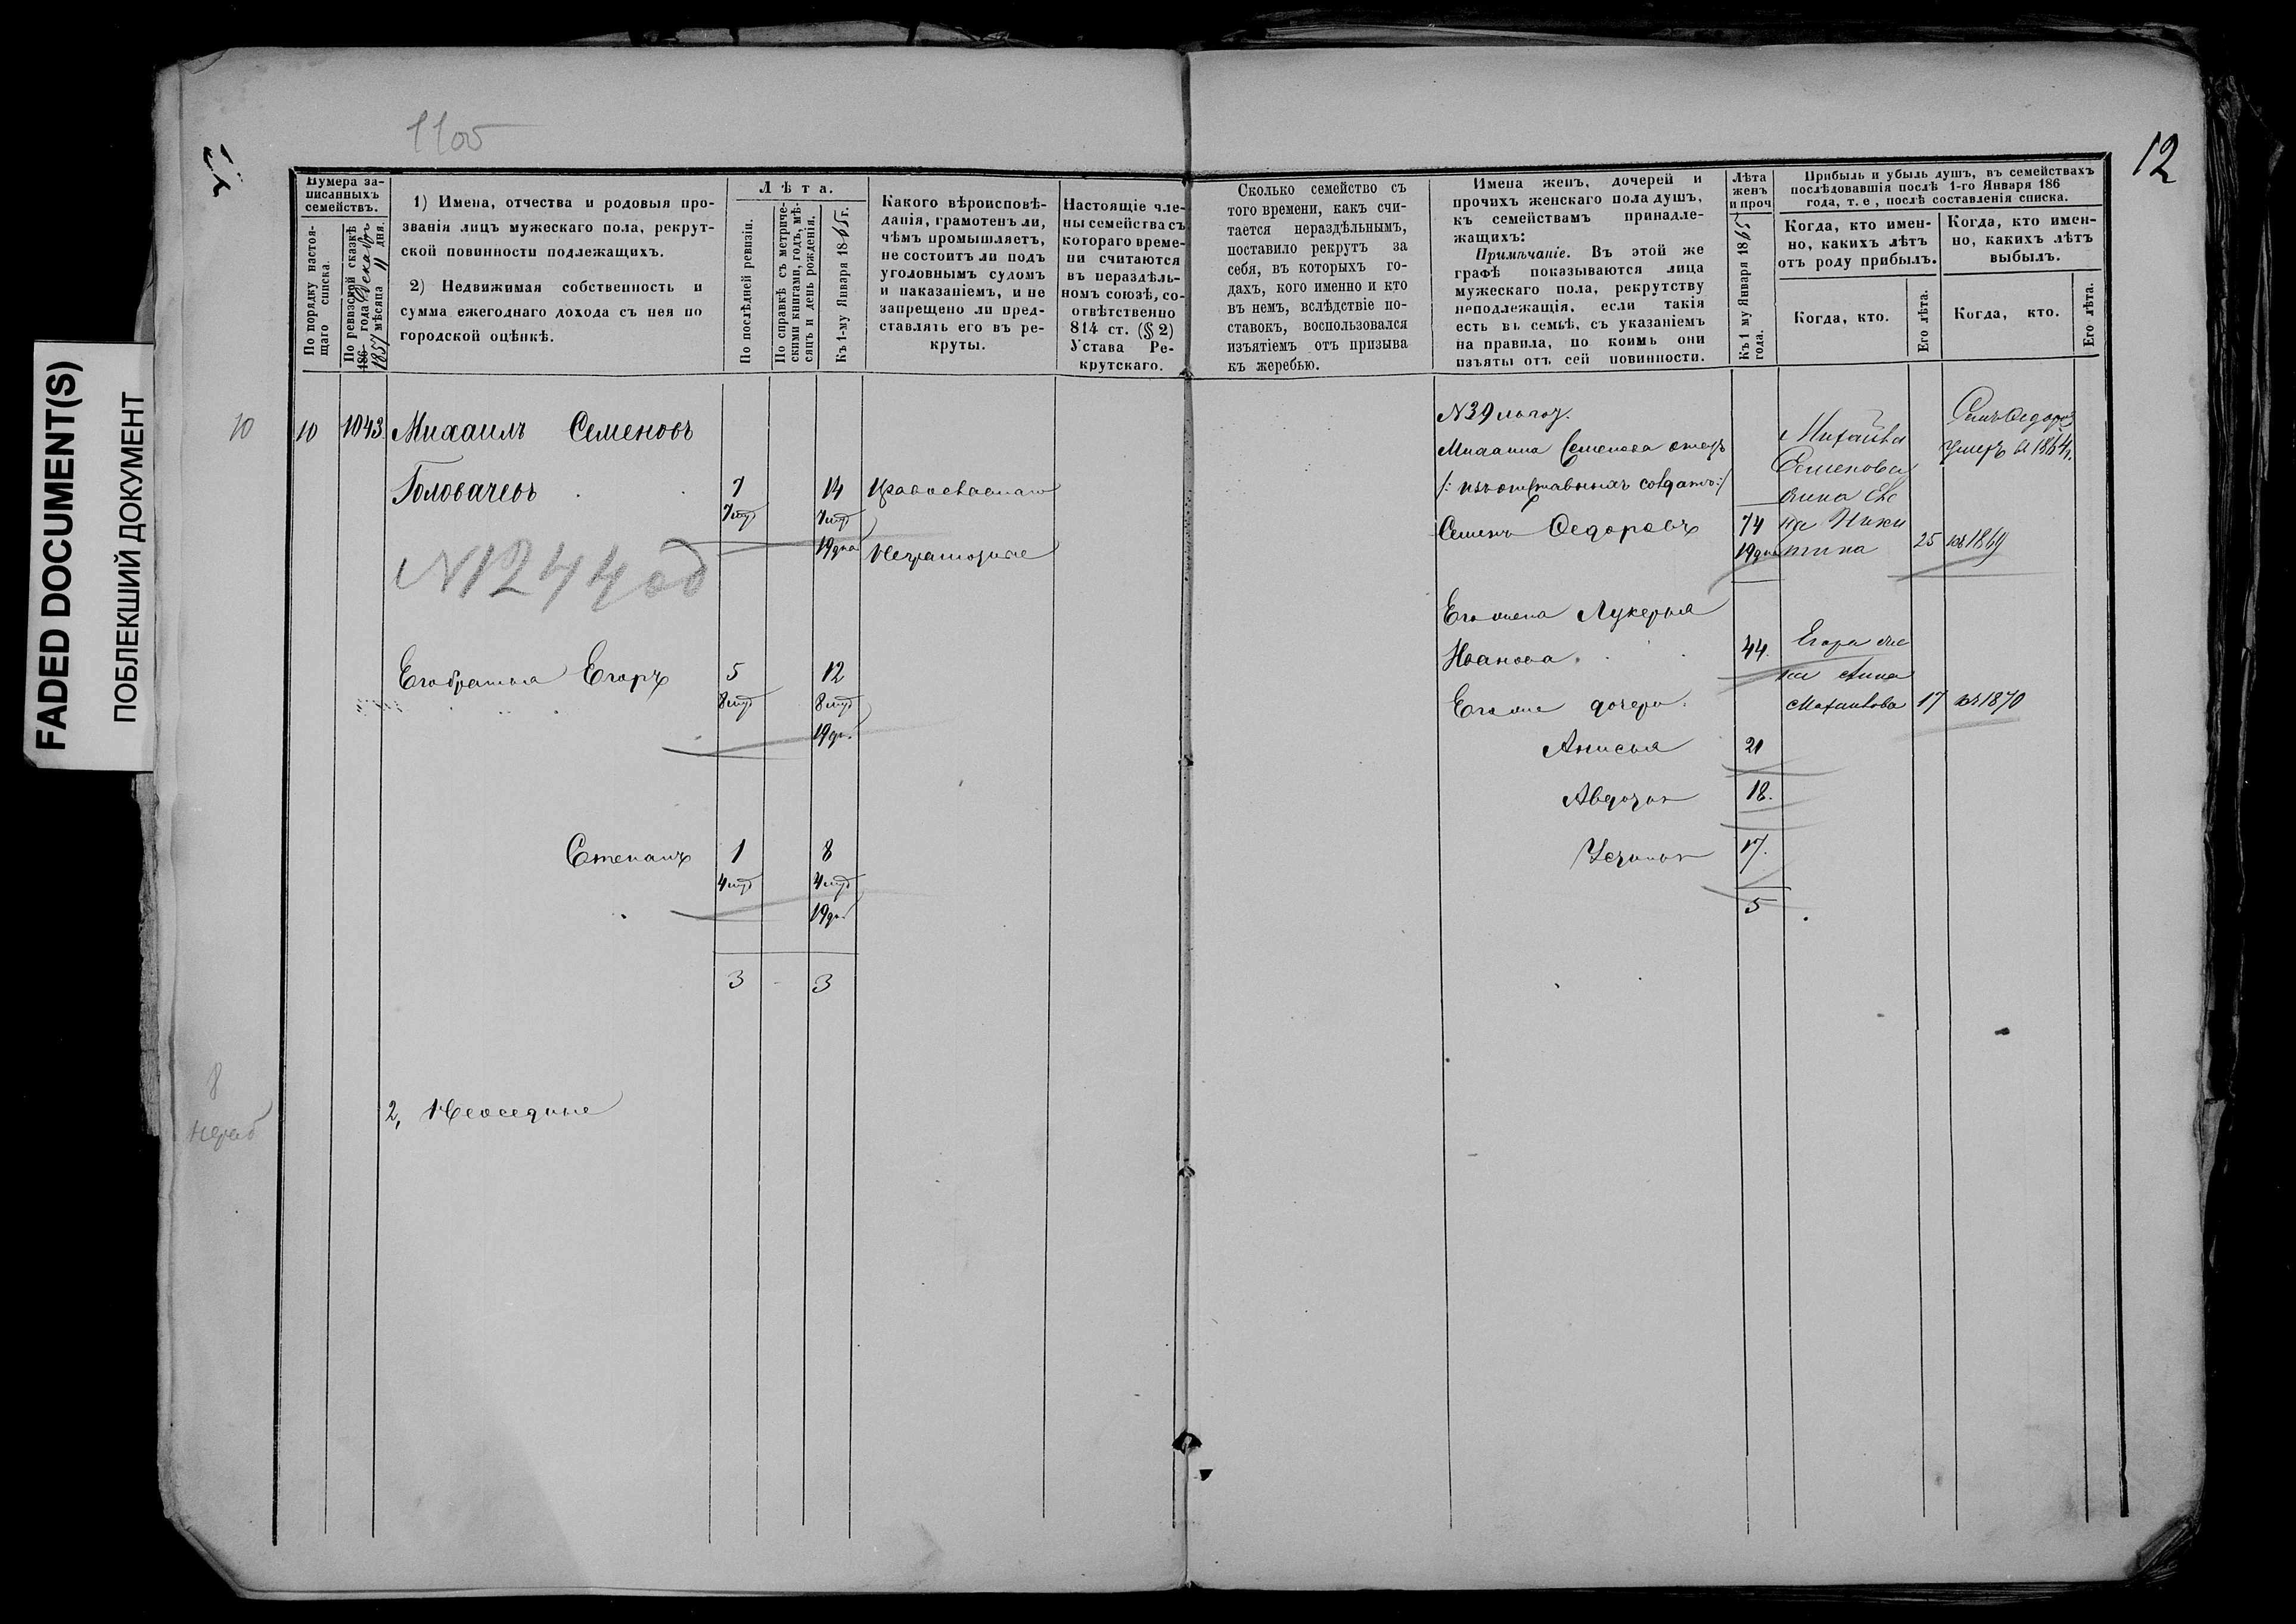 FADED DOCUMENT(S)
ПОБЛЕКШИЙ ДОКУМЕНТ
1100
12
Нумера за-
писанныхъ
семействъ.
По порядку настоя-
щаго списка.
По ревизской сказкѣ
186 года Декабрь
1857 мѣсяца 11 дня.
1) Имена, отчества и родовыя про-
званія лицъ мужескаго пола, рекрут-
ской повинности подлежащихъ.
2) Недвижимая собственность и
сумма ежегоднаго дохода съ нея по
городской оцѣнкѣ.
Лѣта.
По послѣдней ревизіи.
По справкѣ съ метриче-
скими книгами, годъ, мѣ-
сяцъ и день рожденія.
Къ 1-му Января 1865 г.
Какого вѣроисповѣ-
данія, грамотенъ ли,
чѣмъ промышляетъ,
не состоитъ ли подъ
уголовнымъ судомъ
и наказаніемъ, и не
запрещено ли пред-
ставлять его въ ре-
круты.
Настоящіе чле-
ны семейства съ
котораго време-
ни считаются
въ нераздѣль-
номъ союзѣ, со-
отвѣтственно
814 ст. (§ 2)
Устава Ре-
крутскаго.
Сколько семейство съ
того времени, какъ счи-
тается нераздѣльнымъ,
поставило рекрутъ за
себя, въ которыхъ го-
дахъ, кого именно и кто
въ немъ, вслѣдствіе по-
ставокъ, воспользовался
изъятіемъ отъ призыва
къ жеребью.
Имена женъ, дочерей и
прочихъ женскаго пола душъ,
къ семействамъ принадле-
жащихъ:
Примѣчаніе. Въ этой же
графѣ показываются лица
мужескаго пола, рекрутству
неподлежащія, если такія
есть въ семьѣ, съ указаніемъ
на правила, по коимъ они
изъяты отъ сей повинности.
Лѣта
женъ
и проч
Къ 1 му Января 1865
года.
Прибыль и убыль душъ, въ семействахъ
послѣдовавшія послѣ 1-го Января 186
года, т. е, послѣ составленія списка.
Когда, кто имен-
но, какихъ лѣтъ
отъ роду прибылъ.
Когда, кто.
Его лѣта.
Когда, кто имен-
но, какихъ лѣтъ
выбылъ.
Когда, кто.
Его лѣта.
10 10 1043 Михаилъ Семеновъ
Головачевъ 7 14 Православнаго
19 дня Неграмотные
N1244
Его братья Егоръ 5 12
19
Степанъ 1 8
19
3 3
2, Неоседлые
8
N39
Михаила Семенова отецъ
/: изъ отставныхъ солдатъ:/
Семенъ Ѳедоровъ 74
19
Его жена Лукерья
Иванова 44.
Его же дочери
Анисья 21
Авдотья 18.
Устинья 17.
5
Михаила
Семенова
жена
Ники
тина 25 въ 1869
Егора же
на Анна
17 въ 1870
Ѳедоровъ
умеръ въ 1864 г.